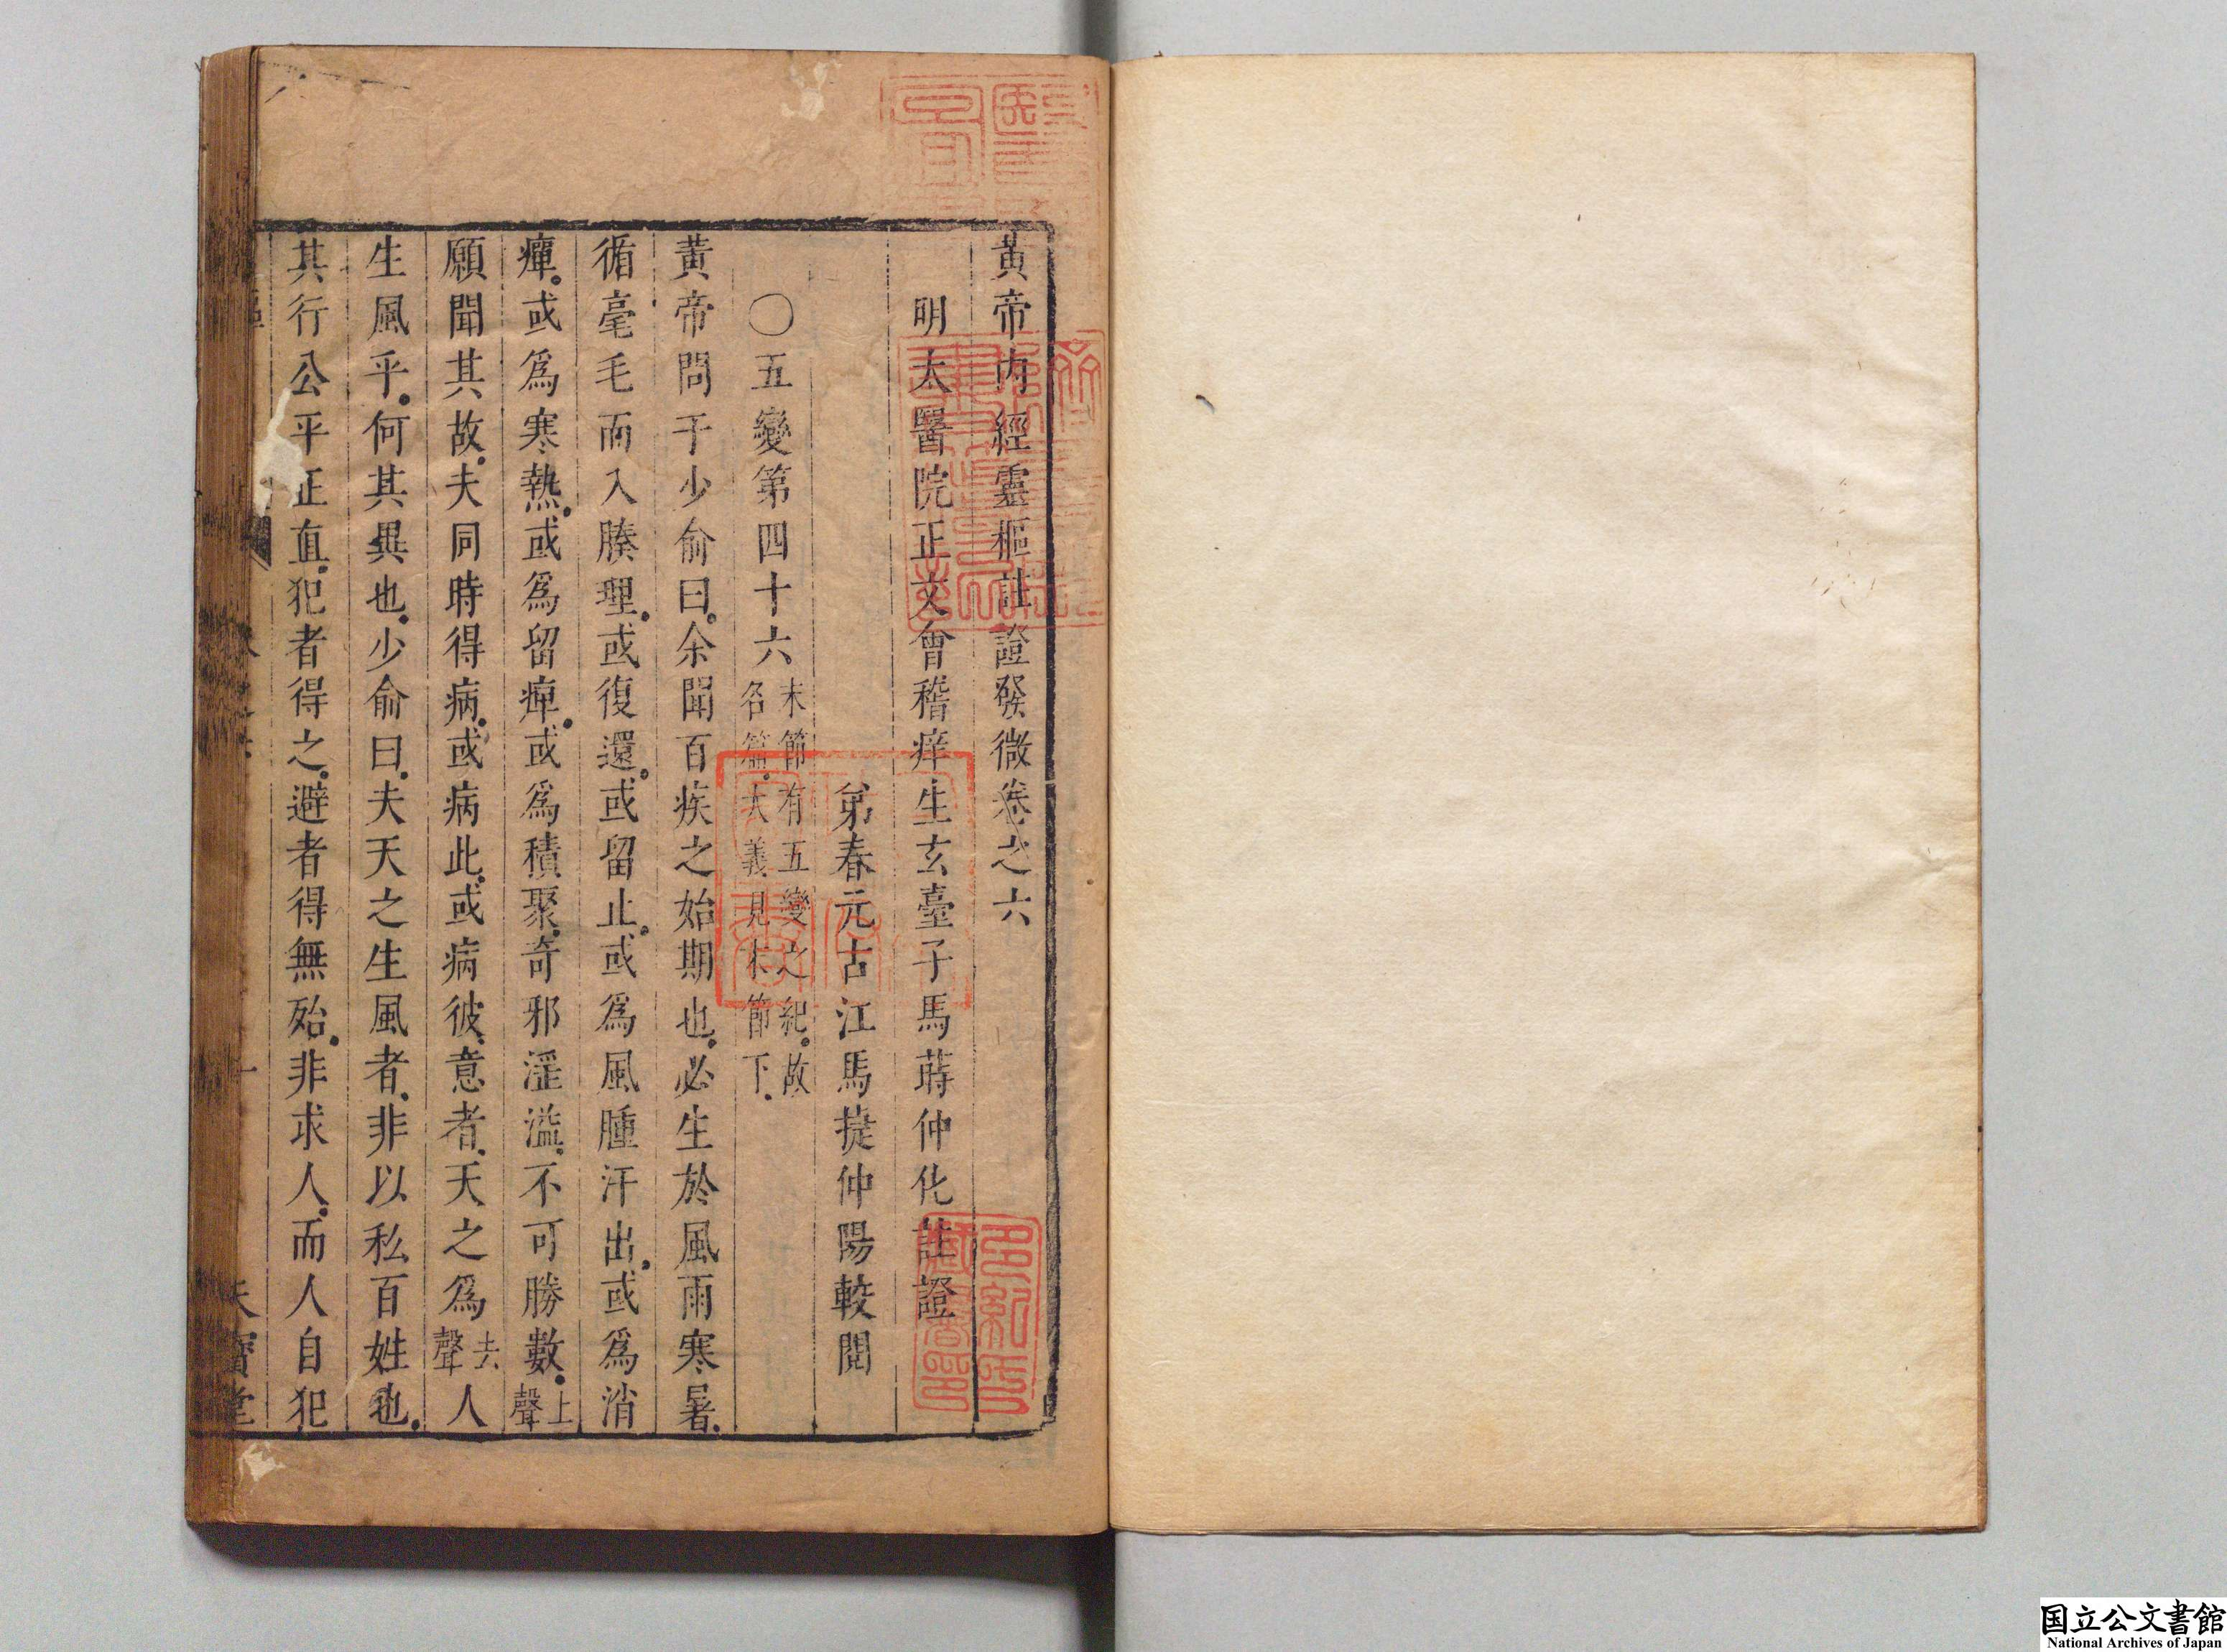 黃帝內經靈樞註證發微卷之六
明太醫院正文會稽庠生玄臺子馬蒔仲化註證
弟春元古江馬㨗仲陽較閱
〇五變第四十六末節有五變之紀。故名篇。大義見本節下。
黃帝問于少俞曰。余聞百疾之始期也。必生於風雨寒暑。
循毫毛而入腠理。或復還。或留止。或爲風腫汗出。或爲消
癉。或爲寒熱。或爲留痺。或爲積聚。奇邪淫溢。不可勝數。上聲
願聞其故。夫同時得病。或病此。或病彼。意者。天之爲去聲人
生風乎。何其異也。少俞曰。夫天之生風者。非以私百姓也。
其行公平正直。犯者得之。避者得無殆。非求人。而人自犯
天寶堂
国立公文書館
National Archives of Japan